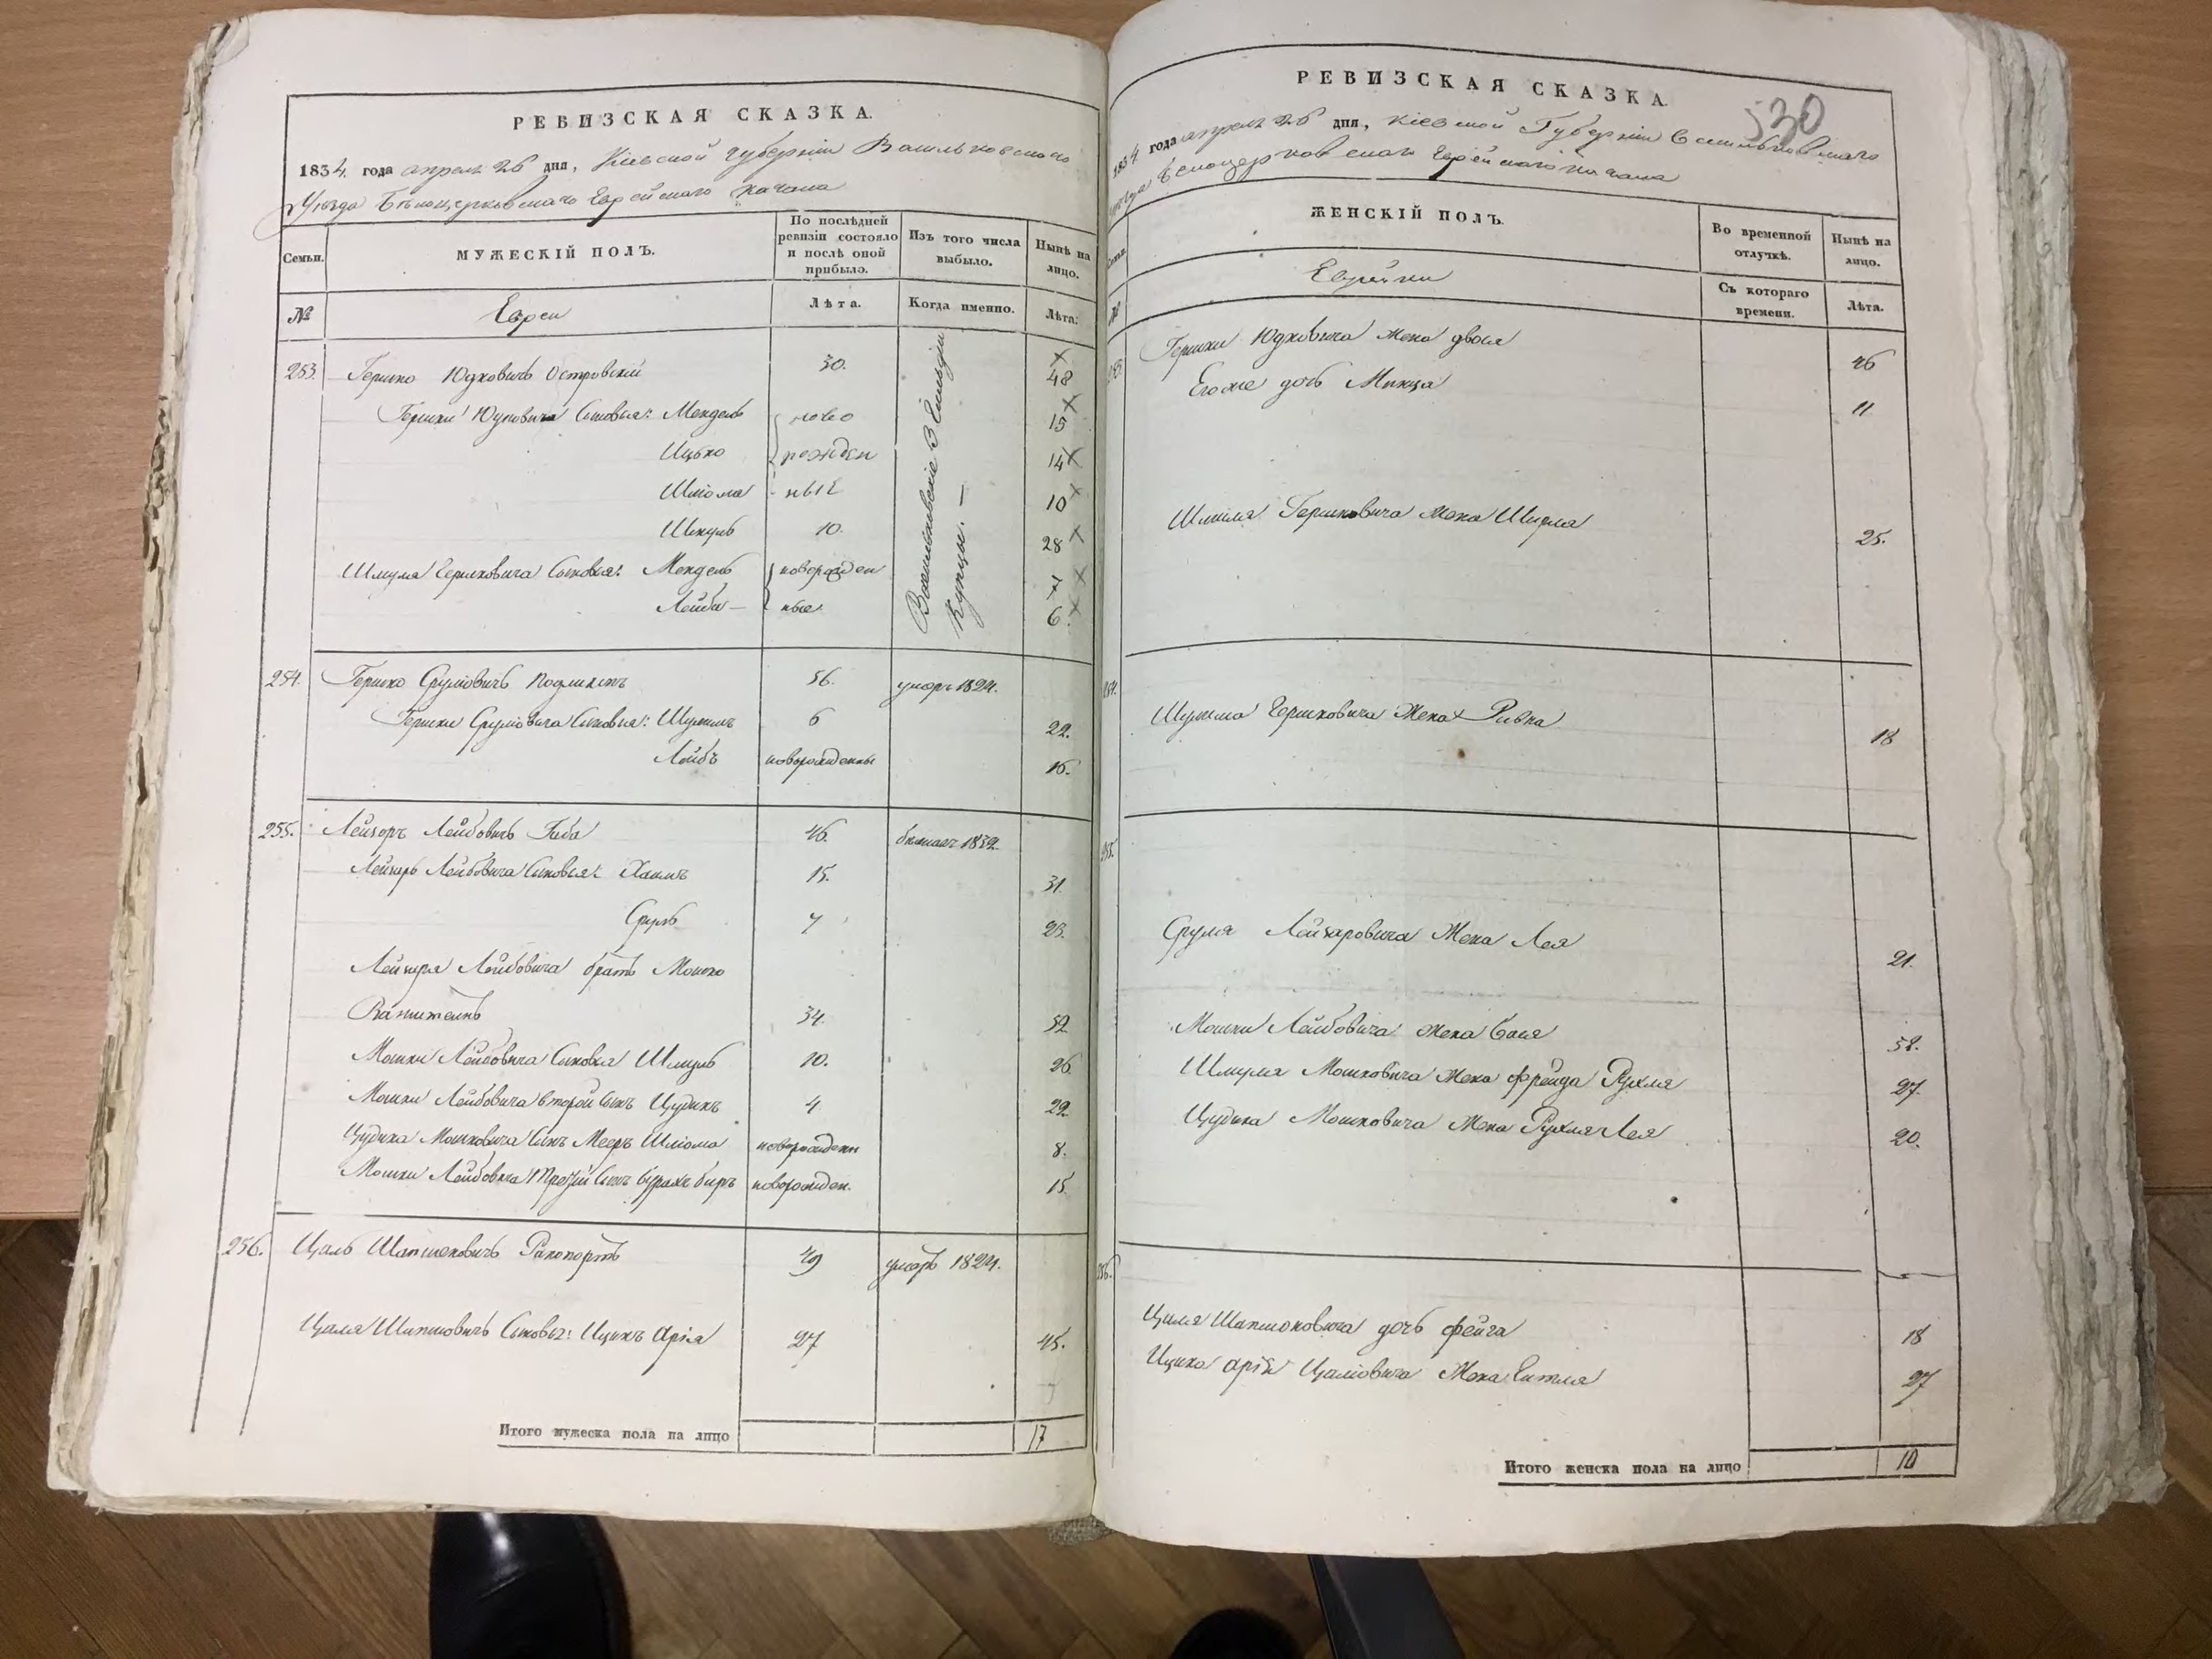 РЕВИЗСКАЯ СКАЗКА.
1834 года апреля 26 дня, Кіевской Губерніи Васильковскаго
Уѣзда Бѣлоцерковскаго Еврейскаго кагала
Семьи.
МУЖЕСКІЙ ПОЛЪ.
По послѣдней ревизіи состояло и послѣ оной прибыло.
Изъ того числа выбыло.
Нынѣ на лицо.
№
Евреи
Лѣта.
Когда именно.
Лѣта.
253. Гершко Юдковичъ Островскій 30. 48
Гершки Юдковича Сыновья: Мендель ново 15
Ицко рожден 14
Шліома ныѣ 10
Шмуль 10. 28
Шмуля Гершковича Сыновья: Мендель новорожден 7
Лейба ные 6.
Васильковскіе 3 Гильдіи
Купцы. —
254. Гершко Сруліовичъ 56. умеръ 1824.
Гершки Сруліовича Сыновья: Шулимъ 6 22.
Лейбъ новорожденны 16.
255. Лейзоръ Лейбовичъ Габа 46. 1832.
Лейзорь Лейбовича Сыновья: Хаимъ 15. 31
Сруль 7 23.
Лейзора Лейбовича братъ Мошко
34. 52
Мошки Лейбовича Сыновья Шмуль 10. 26
Мошки Лейбовича второй Сынъ Цудикъ 4 22
Цудика Мошковича Сынъ Мееръ Шліома новорожденн 8.
Мошки Лейбовича третій Сынъ новорожден. 15
256. Цаль Шапшовичъ Рапопортъ 49 умеръ 1824.
Цаля Шапшовичъ Сыновья: Ицикъ Арія 27 45.
Итого мужеска пола на лицо 17
530
РЕВИЗСКАЯ СКАЗКА.
1834 года апреля 26 дня, Кіевской Губерніи Васильковскаго
Уѣзда Белоцерковскаго Еврейскаго кагала
Семьи.
ЖЕНСКІЙ ПОЛЪ.
Во временной отлучкѣ.
Нынѣ на лицо.
№
Еврейки
Съ котораго времени.
Лѣта.
253. Гершки Юдковича жена двося 46
Его же дочь Минца 11
Шмуля Гершковича жена Шифра 25.
254. Шулима Гершковича Жена Ривка 18
255. Сруля Лейзаровича Жена Лея 21.
Мошки Лейбовича жена Бася 52.
Шмуля Мошковича жена Фрейда Рухля 27.
Цудика Мошковича Жена Рухля Лея 20.
256. Цаля Шапшовича дочь Фейга 18
Ицика Арія Цаліовича Жена 27
Итого женска пола на лицо 10